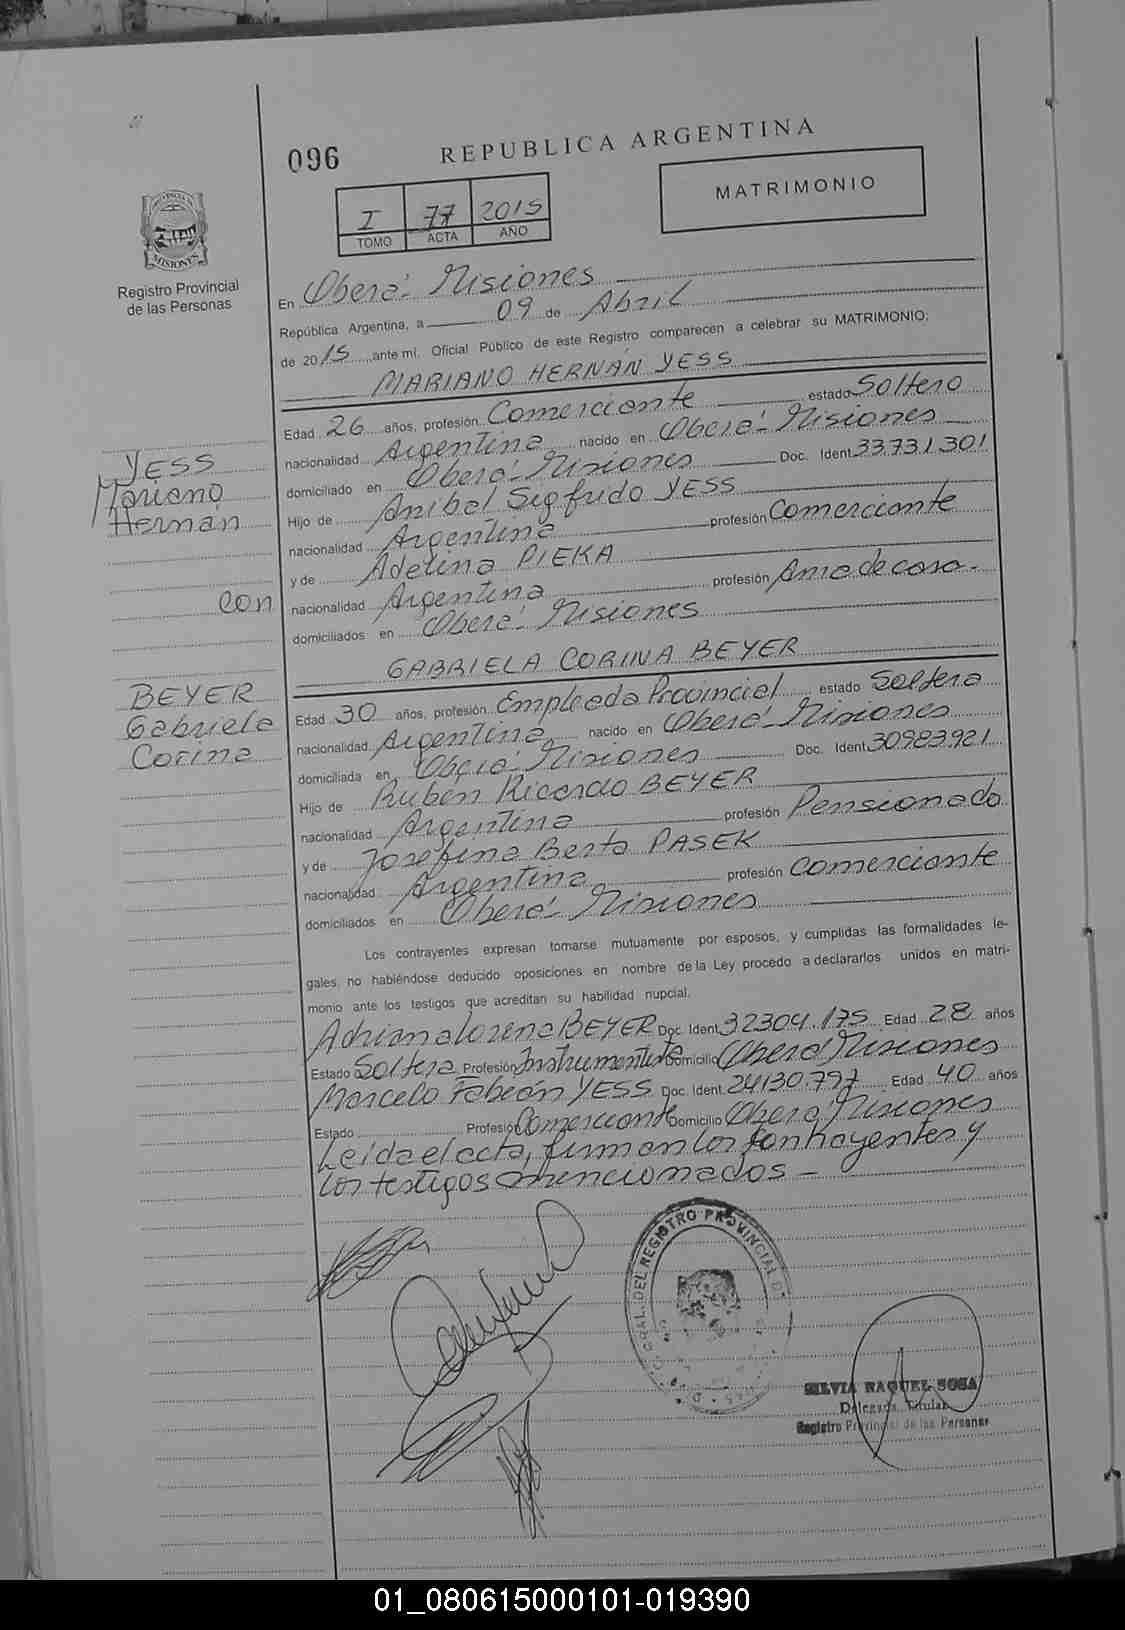 096
REPUBLICA ARGENTINA
MATRIMONIO
I 77 2015
TOMO ACTA AÑO
PROVINCIA DE
MISIONES
Registro Provincial
de las Personas
En Oberá - Misiones
República Argentina, a 09 de Abril
de 2015 ante mí, Oficial Público de este Registro comparecen a celebrar su MATRIMONIO;
MARIANO HERNÁN YESS
Edad 26 años, profesión Comerciante estado Soltero
nacionalidad Argentina nacido en Oberá - Misiones
domiciliado en Oberá - Misiones Doc. Ident. 33731301
Hijo de Anibal Segfrido YESS
nacionalidad Argentina profesión Comerciante
y de Adelina PIEKA
nacionalidad Argentina profesión Ama de casa.
domiciliados en Oberá - Misiones
YESS
Mariano
Hernán
con
BEYER
Gabriela
Corina
GABRIELA CORINA BEYER
Edad 30 años, profesión Empleada Provincial estado Soltera
nacionalidad Argentina nacido en Oberá - Misiones
domiciliada en Oberá - Misiones Doc. Ident. 30983921
Hijo de Ruben Ricardo BEYER
nacionalidad Argentina profesión Pensionado
y de Josefina Berta PASEK
nacionalidad Argentina profesión Comerciante
domiciliados en Oberá - Misiones
Los contrayentes expresan tomarse mutuamente por esposos, y cumplidas las formalidades le-
gales, no habiéndose deducido oposiciones en nombre de la Ley procedo a declararlos unidos en matri-
monio ante los testigos que acreditan su habilidad nupcial.
Adriana Lorena BEYER Doc. Ident. 32304.175 Edad 28 años
Estado Soltera Profesión Instrumentista Domicilio Oberá Misiones
Marcelo Fabián YESS Doc. Ident. 24130.797 Edad 40 años
Estado Profesión Comerciante Domicilio Oberá Misiones
Leida el acta, firman los contrayentes y
los testigos mencionados -
GRAL. DEL REGISTRO PROVINCIAL DE
SILVIA RAQUEL SOSA
Delegada Titular
Registro Provincial de las Personas
01_080615000101-019390